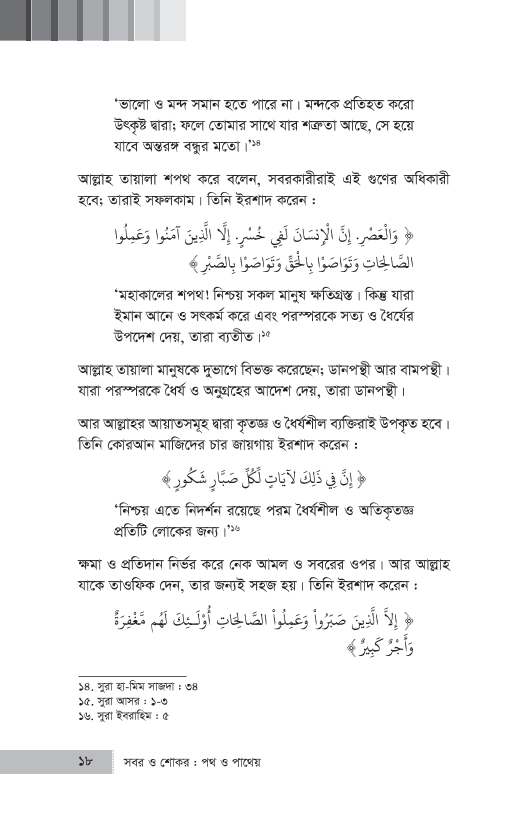 ‘ভালো ও মন্দ সমান হতে পারে না। মন্দকে প্রতিহত করো
উৎকৃষ্ট দ্বারা; ফলে তোমার সাথে যার শত্রুতা আছে, সে হয়ে
যাবে অন্তরঙ্গ বন্ধুর মতো।’১৪
আল্লাহ তায়ালা শপথ করে বলেন, সবরকারীরাই এই গুণের অধিকারী
হবে; তারাই সফলকাম। তিনি ইরশাদ করেন :
﴿ وَالْعَصْرِ. إِنَّ الْإِنسَانَ لَفِي خُسْرٍ. إِلَّا الَّذِينَ آمَنُوا وَعَمِلُوا
الصَّالِحَاتِ وَتَوَاصَوْا بِالْحَقِّ وَتَوَاصَوْا بِالصَّبْرِ ﴾
‘মহাকালের শপথ! নিশ্চয় সকল মানুষ ক্ষতিগ্রস্ত। কিন্তু যারা
ইমান আনে ও সৎকর্ম করে এবং পরস্পরকে সত্য ও ধৈর্যের
উপদেশ দেয়, তারা ব্যতীত।১৫
আল্লাহ তায়ালা মানুষকে দুভাগে বিভক্ত করেছেন; ডানপন্থী আর বামপন্থী।
যারা পরস্পরকে ধৈর্য ও অনুগ্রহের আদেশ দেয়, তারা ডানপন্থী।
আর আল্লাহর আয়াতসমূহ দ্বারা কৃতজ্ঞ ও ধৈর্যশীল ব্যক্তিরাই উপকৃত হবে।
তিনি কোরআন মাজিদের চার জায়গায় ইরশাদ করেন :
﴿ إِنَّ فِي ذَلِكَ لَآيَاتٍ لِّكُلِّ صَبَّارٍ شَكُورٍ ﴾
‘নিশ্চয় এতে নিদর্শন রয়েছে পরম ধৈর্যশীল ও অতিকৃতজ্ঞ
প্রতিটি লোকের জন্য।’১৬
ক্ষমা ও প্রতিদান নির্ভর করে নেক আমল ও সবরের ওপর। আর আল্লাহ
যাকে তাওফিক দেন, তার জন্যই সহজ হয়। তিনি ইরশাদ করেন :
﴿ إِلاَّ الَّذِينَ صَبَرُواْ وَعَمِلُواْ الصَّالِحَاتِ أُوْلَـئِكَ لَهُم مَّغْفِرَةٌ
وَأَجْرٌ كَبِيرٌ ﴾
১৪. সুরা হা-মিম সাজদা : ৩৪
১৫. সুরা আসর : ১-৩
১৬. সুরা ইবরাহিম : ৫
১৮ সবর ও শোকর : পথ ও পাথেয়